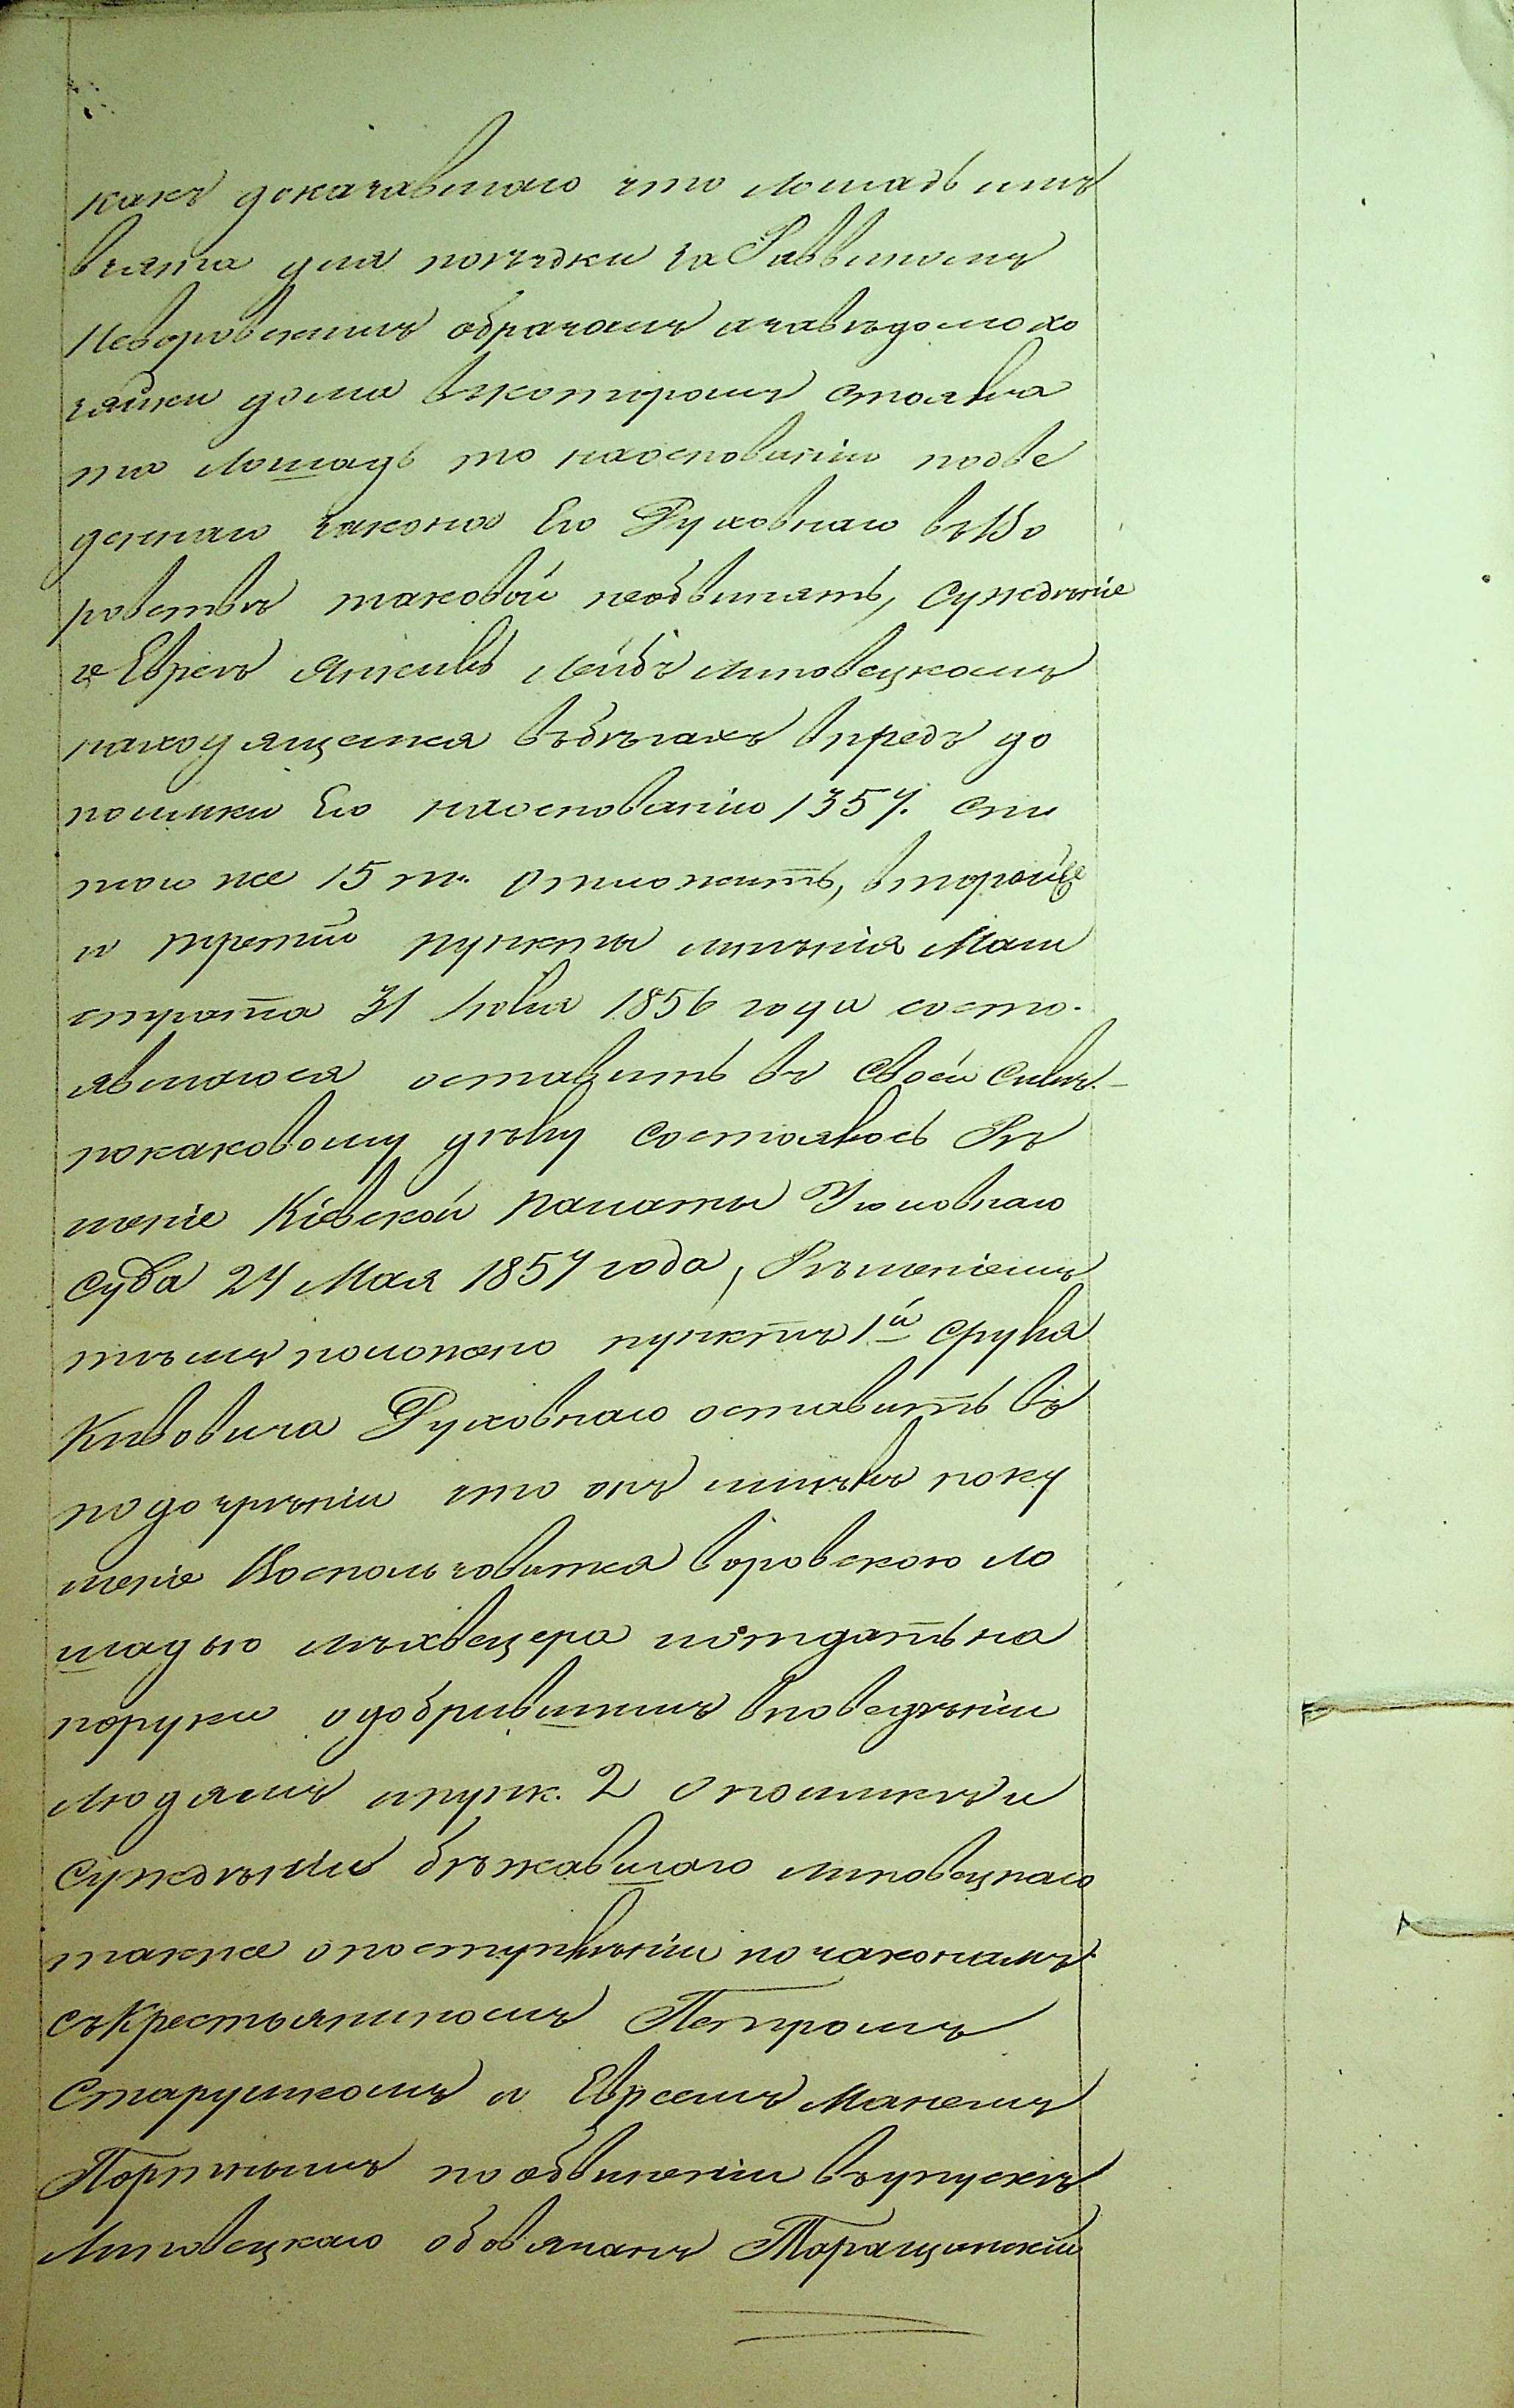 какъ доказавшаго что лошадь имъ
взята для поѣздки за Раввиномъ
Неворовскимъ образомъ а завѣдомо хо
зяйки дома въкоторомъ стояла
та лошадь то наоснованіи подве
деннаго закона Его Духовнаго въ Во
ровствѣ таковой необвинять, Сужденіе
о Евреѣ Янкелѣ Лейбѣ Липовецкомъ
находящемся въбѣгахъ впредь до
поимки Его наоснованіи 1357. ст.
того же 15 т. отложить, второй же
и третій пункты мнѣнія Маги
страта 31 Іюля 1856 года состо
явшагося оставить въ своей силѣ.
покаковому дѣлу состоялось Рѣ
шеніе Кіевской Палаты Уголовнаго
Суда 27 Мая 1857 года, Рѣшеніемъ
тѣмъ положено пунктъ 1й Сруля
Кивовича Духовнаго оставить въ
подозрѣніи что онъ имѣлъ поку
шеніе Воспользоватся воровскою ло
шадью и отдать на
поруки одобрившимъ вповеденіи
людямъ ипунк. 2 О поимкѣ и
сужденіи бѣжавшаго Липовецкаго
также опоступленіи по законамъ
съКрестьяниномъ Петромъ
Старушкомъ и Евреемъ Манелемъ
Портнымъ по обвиненіи въупускѣ
Липовецкаго обовязанъ Таращанскій